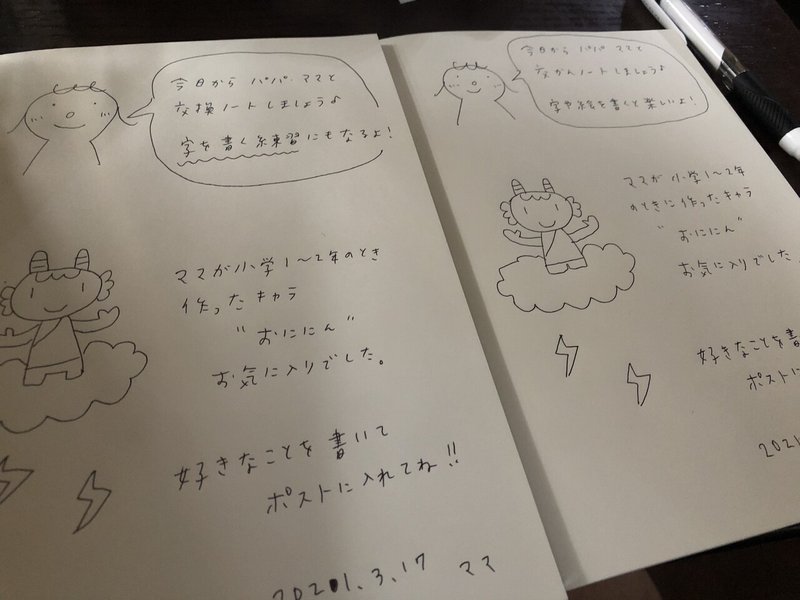 今日から パパ・ママと
交換ノートしましょう♪
字を書く練習にもなるよ!
ママが小学1〜2年のとき
作ったキャラ
"おににん"
お気に入りでした。
好きなことを書いて
ポストに入れてね!!
2021.3.17 ママ
今日から パパ ママと
交かんノートしましょう♪
字や絵を書くと楽しいよ!
ママが小学1〜2年
のときに作ったキャラ
"おににん"
お気に入りでした。
好きなことを書
ポストに
2021